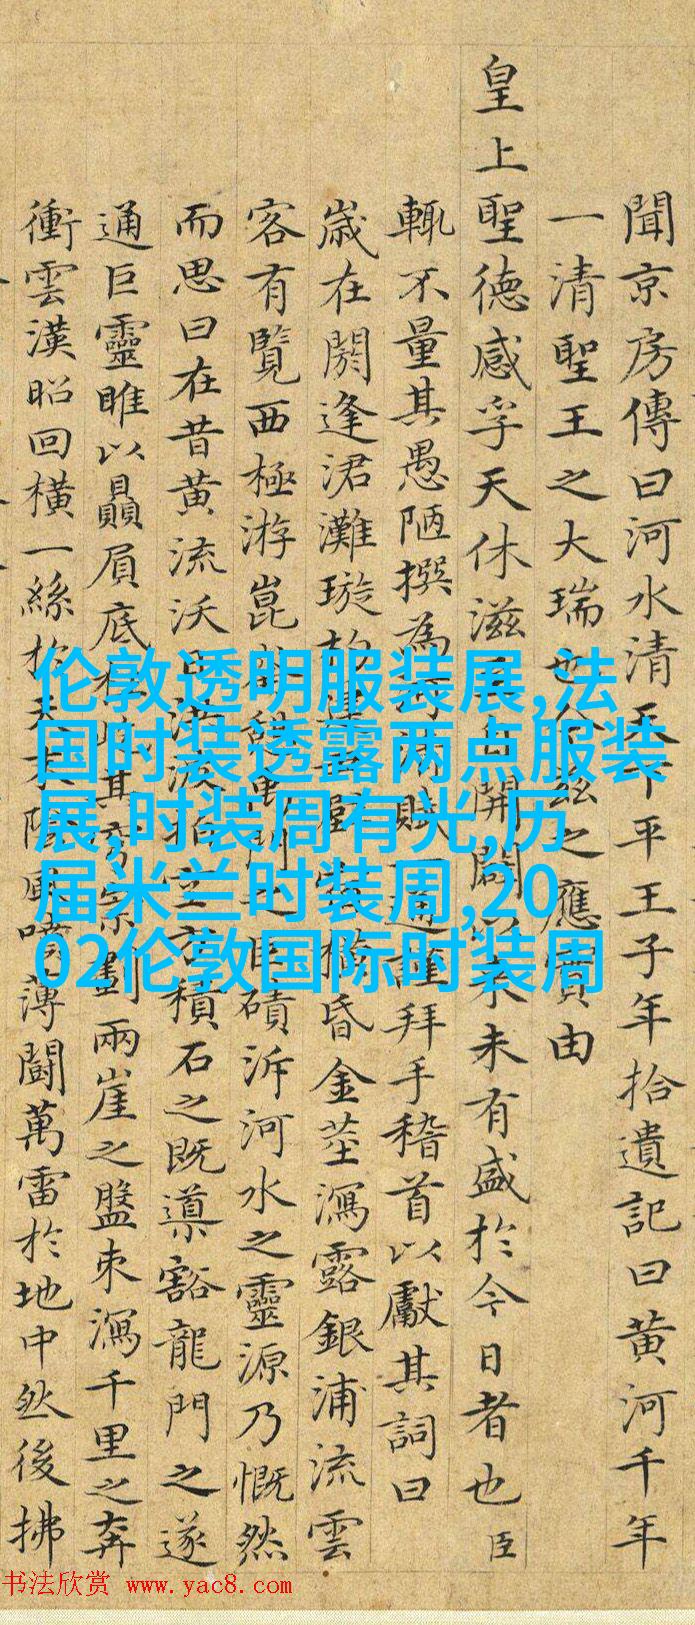 聞京房傳曰河水清天下平王子年拾遺記曰黄河千年
一清聖王之大瑞也今兹之應實由
皇上聖德感孚天休滋至自開闢以來未有盛於今日者也臣
輒不量其愚陋撰為河清賦一通謹拜手稽首以獻其詞曰
歳在閼逢涒灘璇
昏金莖瀉露銀浦流雲
客有覽西極游崑
臣磧泝河水之靈源乃慨然
而思曰在昔黄流沃日
積石之既導豁龍門之遂
通巨靈睢以贔屓底柱
其
劃兩崖之盤束瀉千里之奔
衝雲漢昭回横一絲於天末
噴薄鬪萬雷於地中然後拂
伦敦透明服装展,法
国时装透露两点服装
展,时装周有光,历
届米兰时装周,20
02伦敦国际时装周
书法欣赏 www.yac8.com